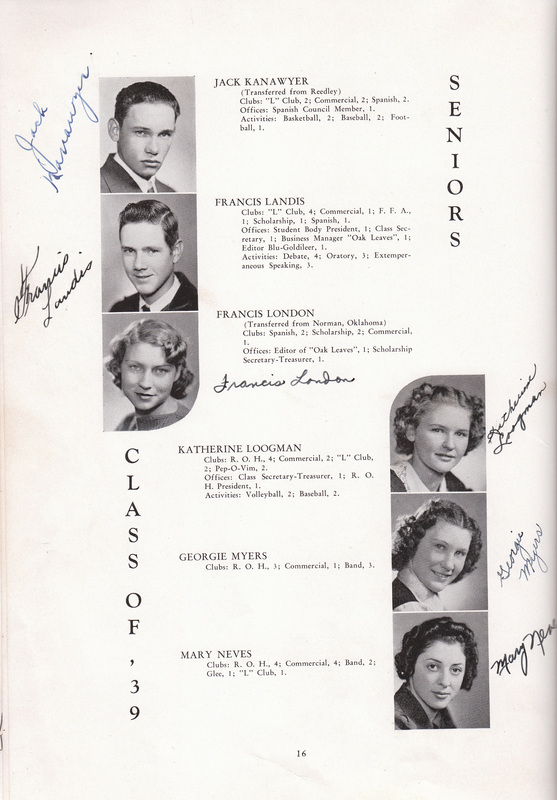 SENIORS
Jack Kanawyer
JACK KANAWYER
(Transferred from Reedley)
Clubs: "L" Club, 2; Commercial, 2; Spanish, 2.
Offices: Spanish Council Member, 1.
Activities: Basketball, 2; Baseball, 2; Foot-
ball, 1.
Francis
Landis
FRANCIS LANDIS
Clubs: "L" Club, 4; Commercial, 1; F. F. A.,
1; Scholarship, 1; Spanish, 1.
Offices: Student Body President, 1; Class Sec-
retary, 1; Business Manager "Oak Leaves", 1;
Editor Blu-Goldileer, 1.
Activities: Debate, 4; Oratory, 3; Extemper-
aneous Speaking, 3.
FRANCIS LONDON
(Transferred from Norman, Oklahoma)
Clubs: Spanish, 2; Scholarship, 2; Commercial,
1.
Offices: Editor of "Oak Leaves", 1; Scholarship
Secretary-Treasurer, 1.
Francis London
CLASS OF '39
KATHERINE LOOGMAN
Clubs: R. O. H., 4; Commercial, 2; "L" Club,
2; Pep-O-Vim, 2.
Offices: Class Secretary-Treasurer, 1; R. O.
H. President, 1.
Activities: Volleyball, 2; Baseball, 2.
Katherine
Loogman
GEORGIE MYERS
Clubs: R. O. H., 3; Commercial, 1; Band, 3.
Georgie
Myers
MARY NEVES
Clubs: R. O. H., 4; Commercial, 4; Band, 2;
Glee, 1; "L" Club, 1.
Mary Neve
16